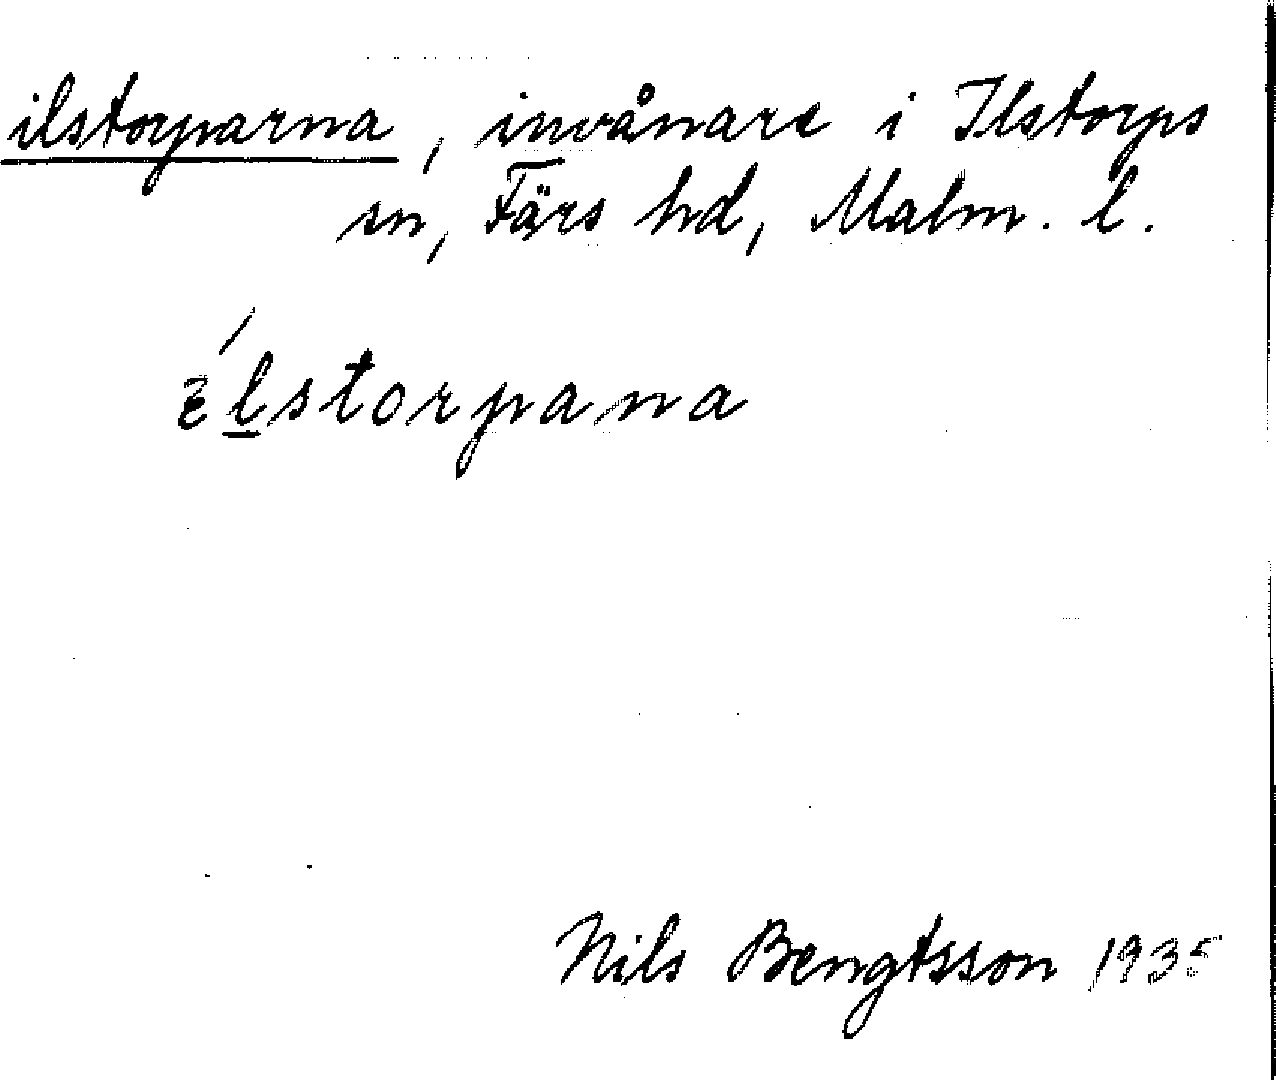 ilstorparna, invånare i Ilstorps
sn, Färs hd, Malm. l.
élstorpana
Nils Bengtsson 1935